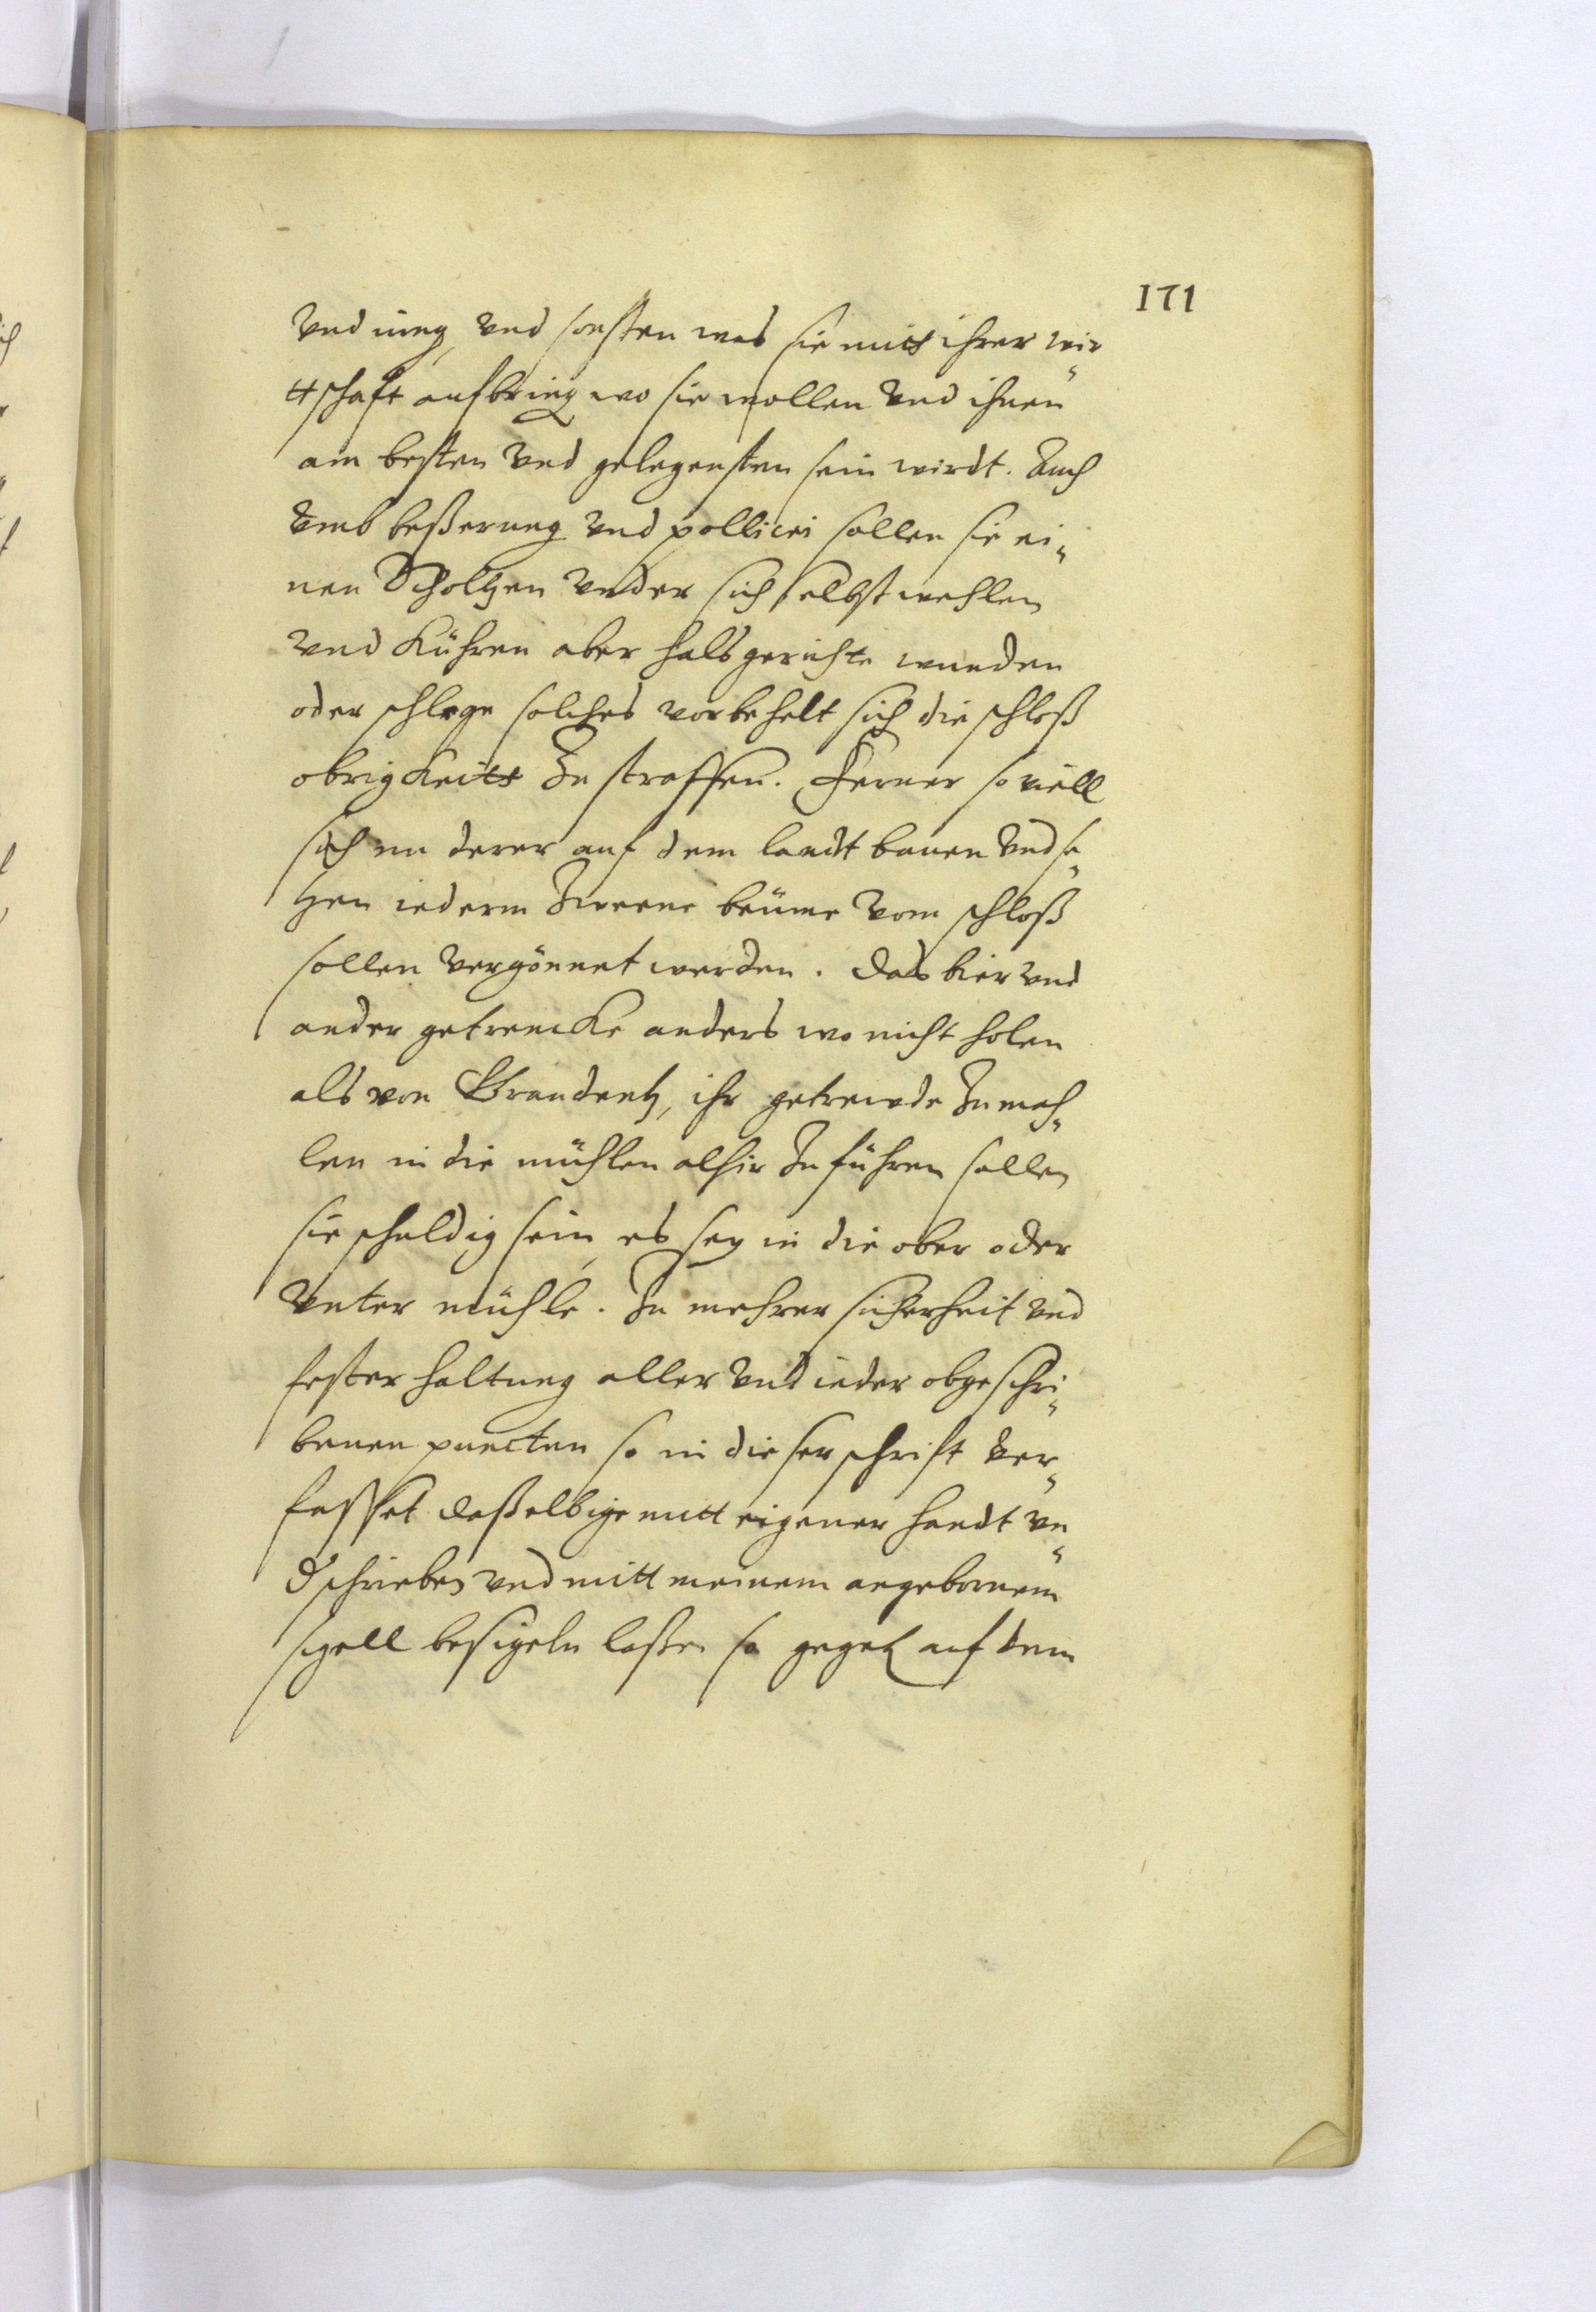 171
vnd mag, vnd sonsten was sie mitt ihrer wir„
ttschaft aufbring wo sie wollen vnd ihnen
am besten vnd gelegensten sein wirdt. Auch
vmb beßerung vnd pollicei sollen sie ei„
nen Scholtzen vnder sich selbst wehlen
vnd kühren aber halsgerichte wunden
oder schlege solches vorbehelt sich die schloß
obrigkeitt zu straffen. Ferner so viell
sich derer auf dem landt bauen vnd se„
tzen iederm zweene beume vom schloß
sollen vergönnet werden. das bier vnd
ander getrencke anders wo nicht holen
als von Graudentz, ihr getreyde zu mah„
len in die mühlen alhir zu führen sollen
sie schuldig sein, es sey in die ober oder
vnter mühle. Zu mehrer sicherheit vnd
fester haltung aller vnd ieder obgeschri„
benen puncten so in dieser schrift ver„
fasset daßelbige mitt eigener handt vn„
dschrieben vnd mitt meinem angebornem
sigell besigeln laßen so gegeb auf dem